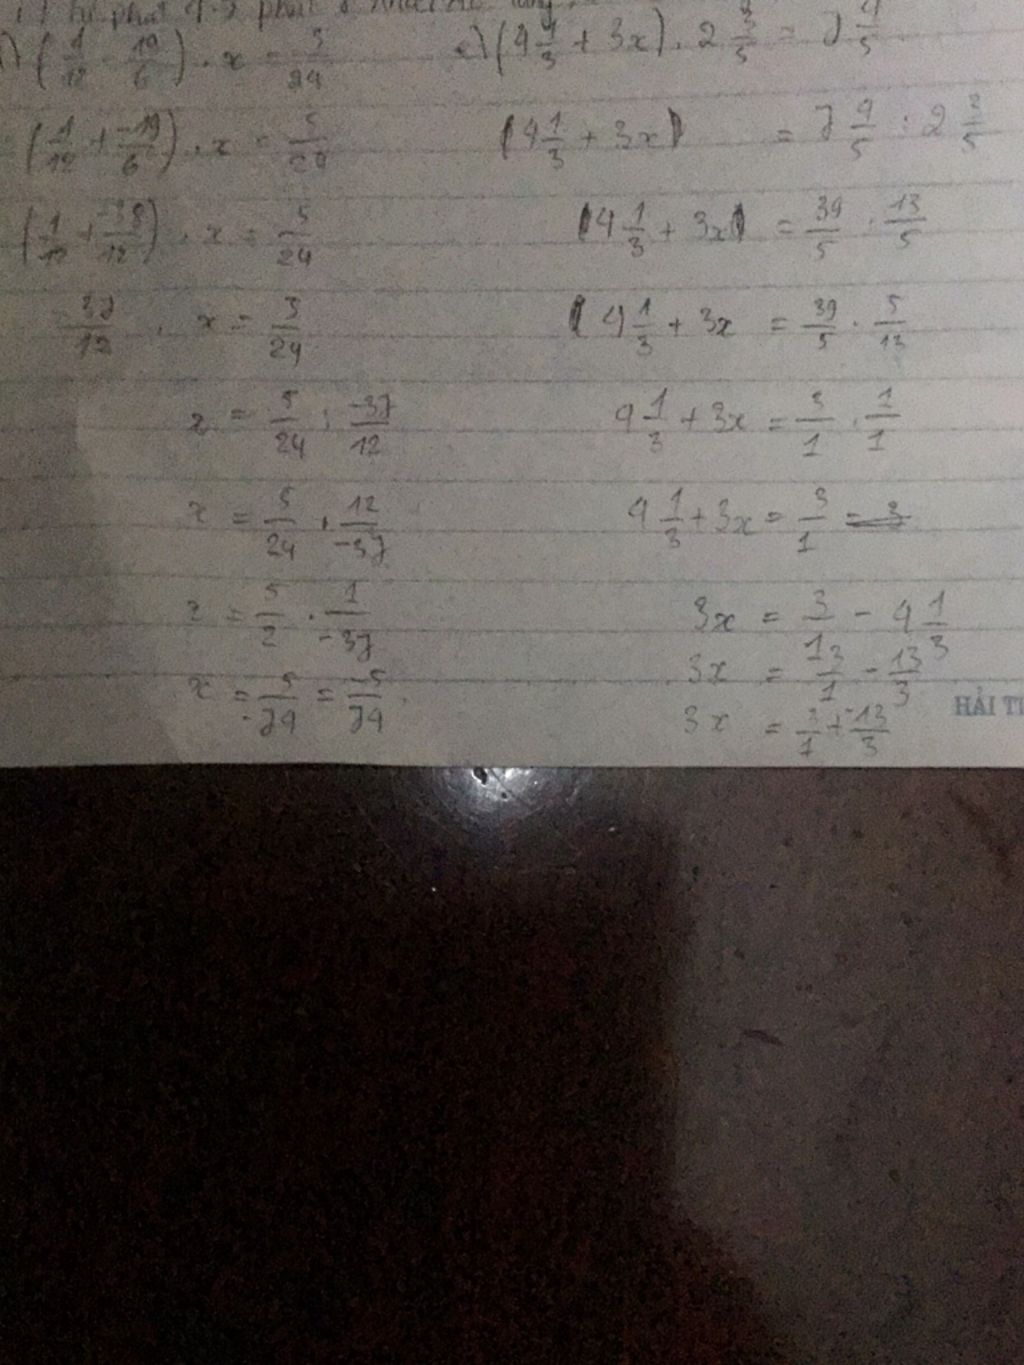 (1/12 - 19/6) . x = 5/24
(1/12 + -19/6) . x = 5/24
(1/12 + -38/12) . x = 5/24
-37/12 . x = 5/24
x = 5/24 : -37/12
x = 5/24 . 12/-37
x = 5/2 . 1/-37
x = 5/-74 = -5/74
e) (4 1/3 + 3x) . 2 3/5 = 7 4/5
(4 1/3 + 3x) = 7 4/5 : 2 3/5
(4 1/3 + 3x) = 39/5 : 13/5
(4 1/3 + 3x = 39/5 . 5/13
4 1/3 + 3x = 3/1 . 1/1
4 1/3 + 3x = 3/1
3x = 3/1 - 4 1/3
3x = 3/1 - 13/3
3x = 3/1 + -13/3
HẢI